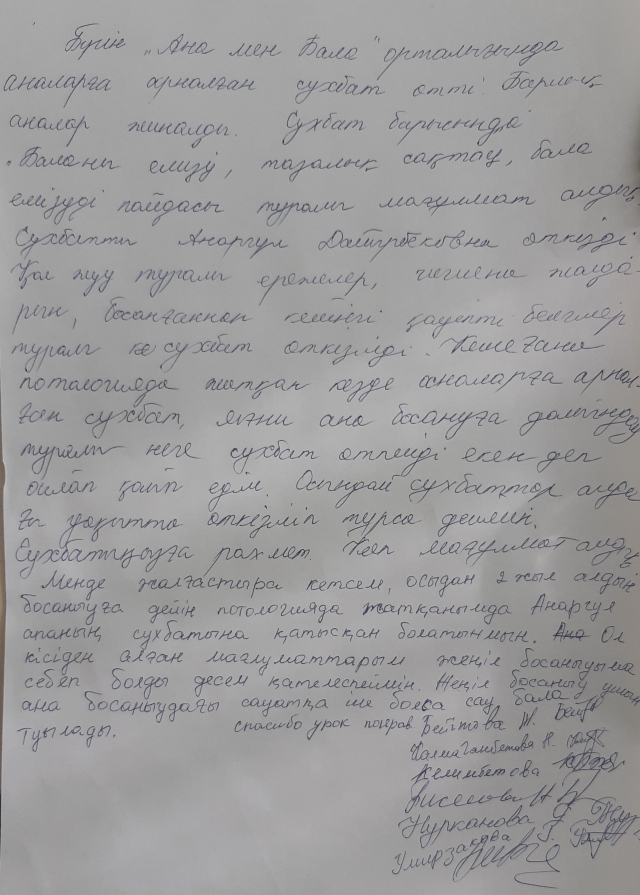 Бүгін „Ана мен Бала" орталығында
аналарға арналған сухбат өтті. Барлық
аналар жиналды. Сухбат барысында
Баланы емізу, тазалық сақтау, бала
емізуді пайдасы туралы мағұлмат алдық.
Сухбатты Анаргүл Дайырбековна өткізді
Қол жуу туралы ережелер, жағда-
рын, босанғаннан кейінгі қауіпті белгілер
туралы сухбат өткізілді. Кешеғана
потологияда жатқан кезде аналарға арнал-
ған сухбат, яғни ана босануға дайындау
туралы неге сухбат өтпейді екен деп
ойлап қалып едім. Осындай сухбаттар алде
ғы уақытта өткізліп турса деймін.
Сухбатыңызға рахмет. Көп мағұлмат алдық
Менде жалғастыра кетсем, осыдан 2 жыл алдын
босаныуға дейін потологияда жатқанымда Анаргүл
апаның сухбатына қатысқан болатынмын. Ол
кісіден алған мағлуматтарым жеңіл босаныуыма
себеп болды десем қателеспеймін. Жеңіл босаныу үшін
ана босаныудағы сауатқа ие болса сау бала
туылады. спасибо урок понрав. Бейтова Ж.
Н.
Келимбетова
Н
Нурканова
Умирзакова Г.